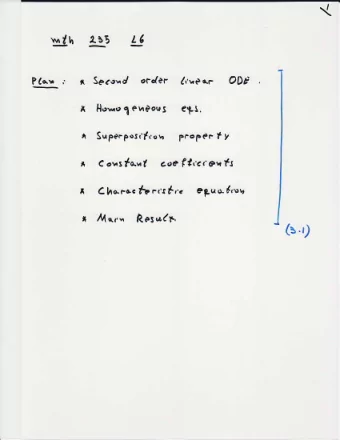 mth 235 L6
Plan: * Second order linear ODE.
* Homogeneous eqs.
* Superposition property
* Constant coefficients
* Characteristic equation
* Main Result
(3.1)